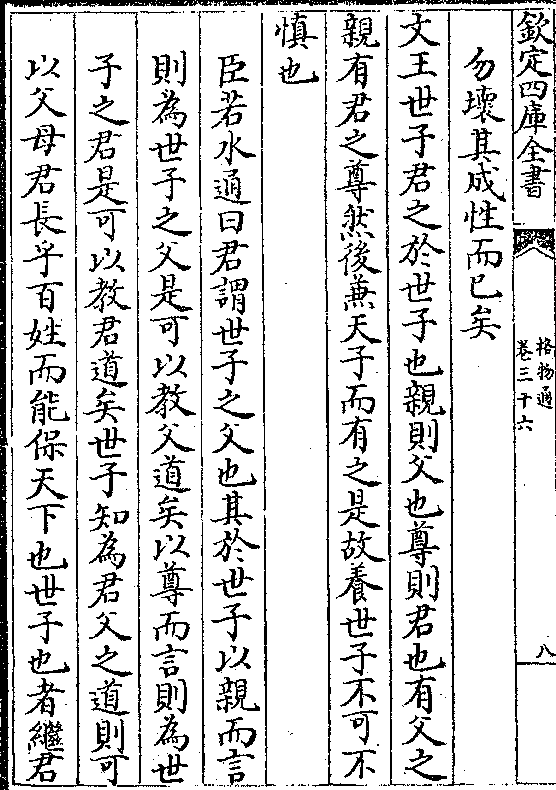 欽定四庫全書
格物通
卷三十六
八
勿壞其成性而已矣
文王世子君之於世子也親則父也尊則君也有父之
親有君之尊然後兼天子而有之是故養世子不可不
慎也
臣若水通曰君謂世子之父也其於世子以親而言
則為世子之父是可以教父道矣以尊而言則為世
子之君是可以教君道矣世子知為君父之道則可
以父母君長乎百姓而能保天下也世子也者繼君